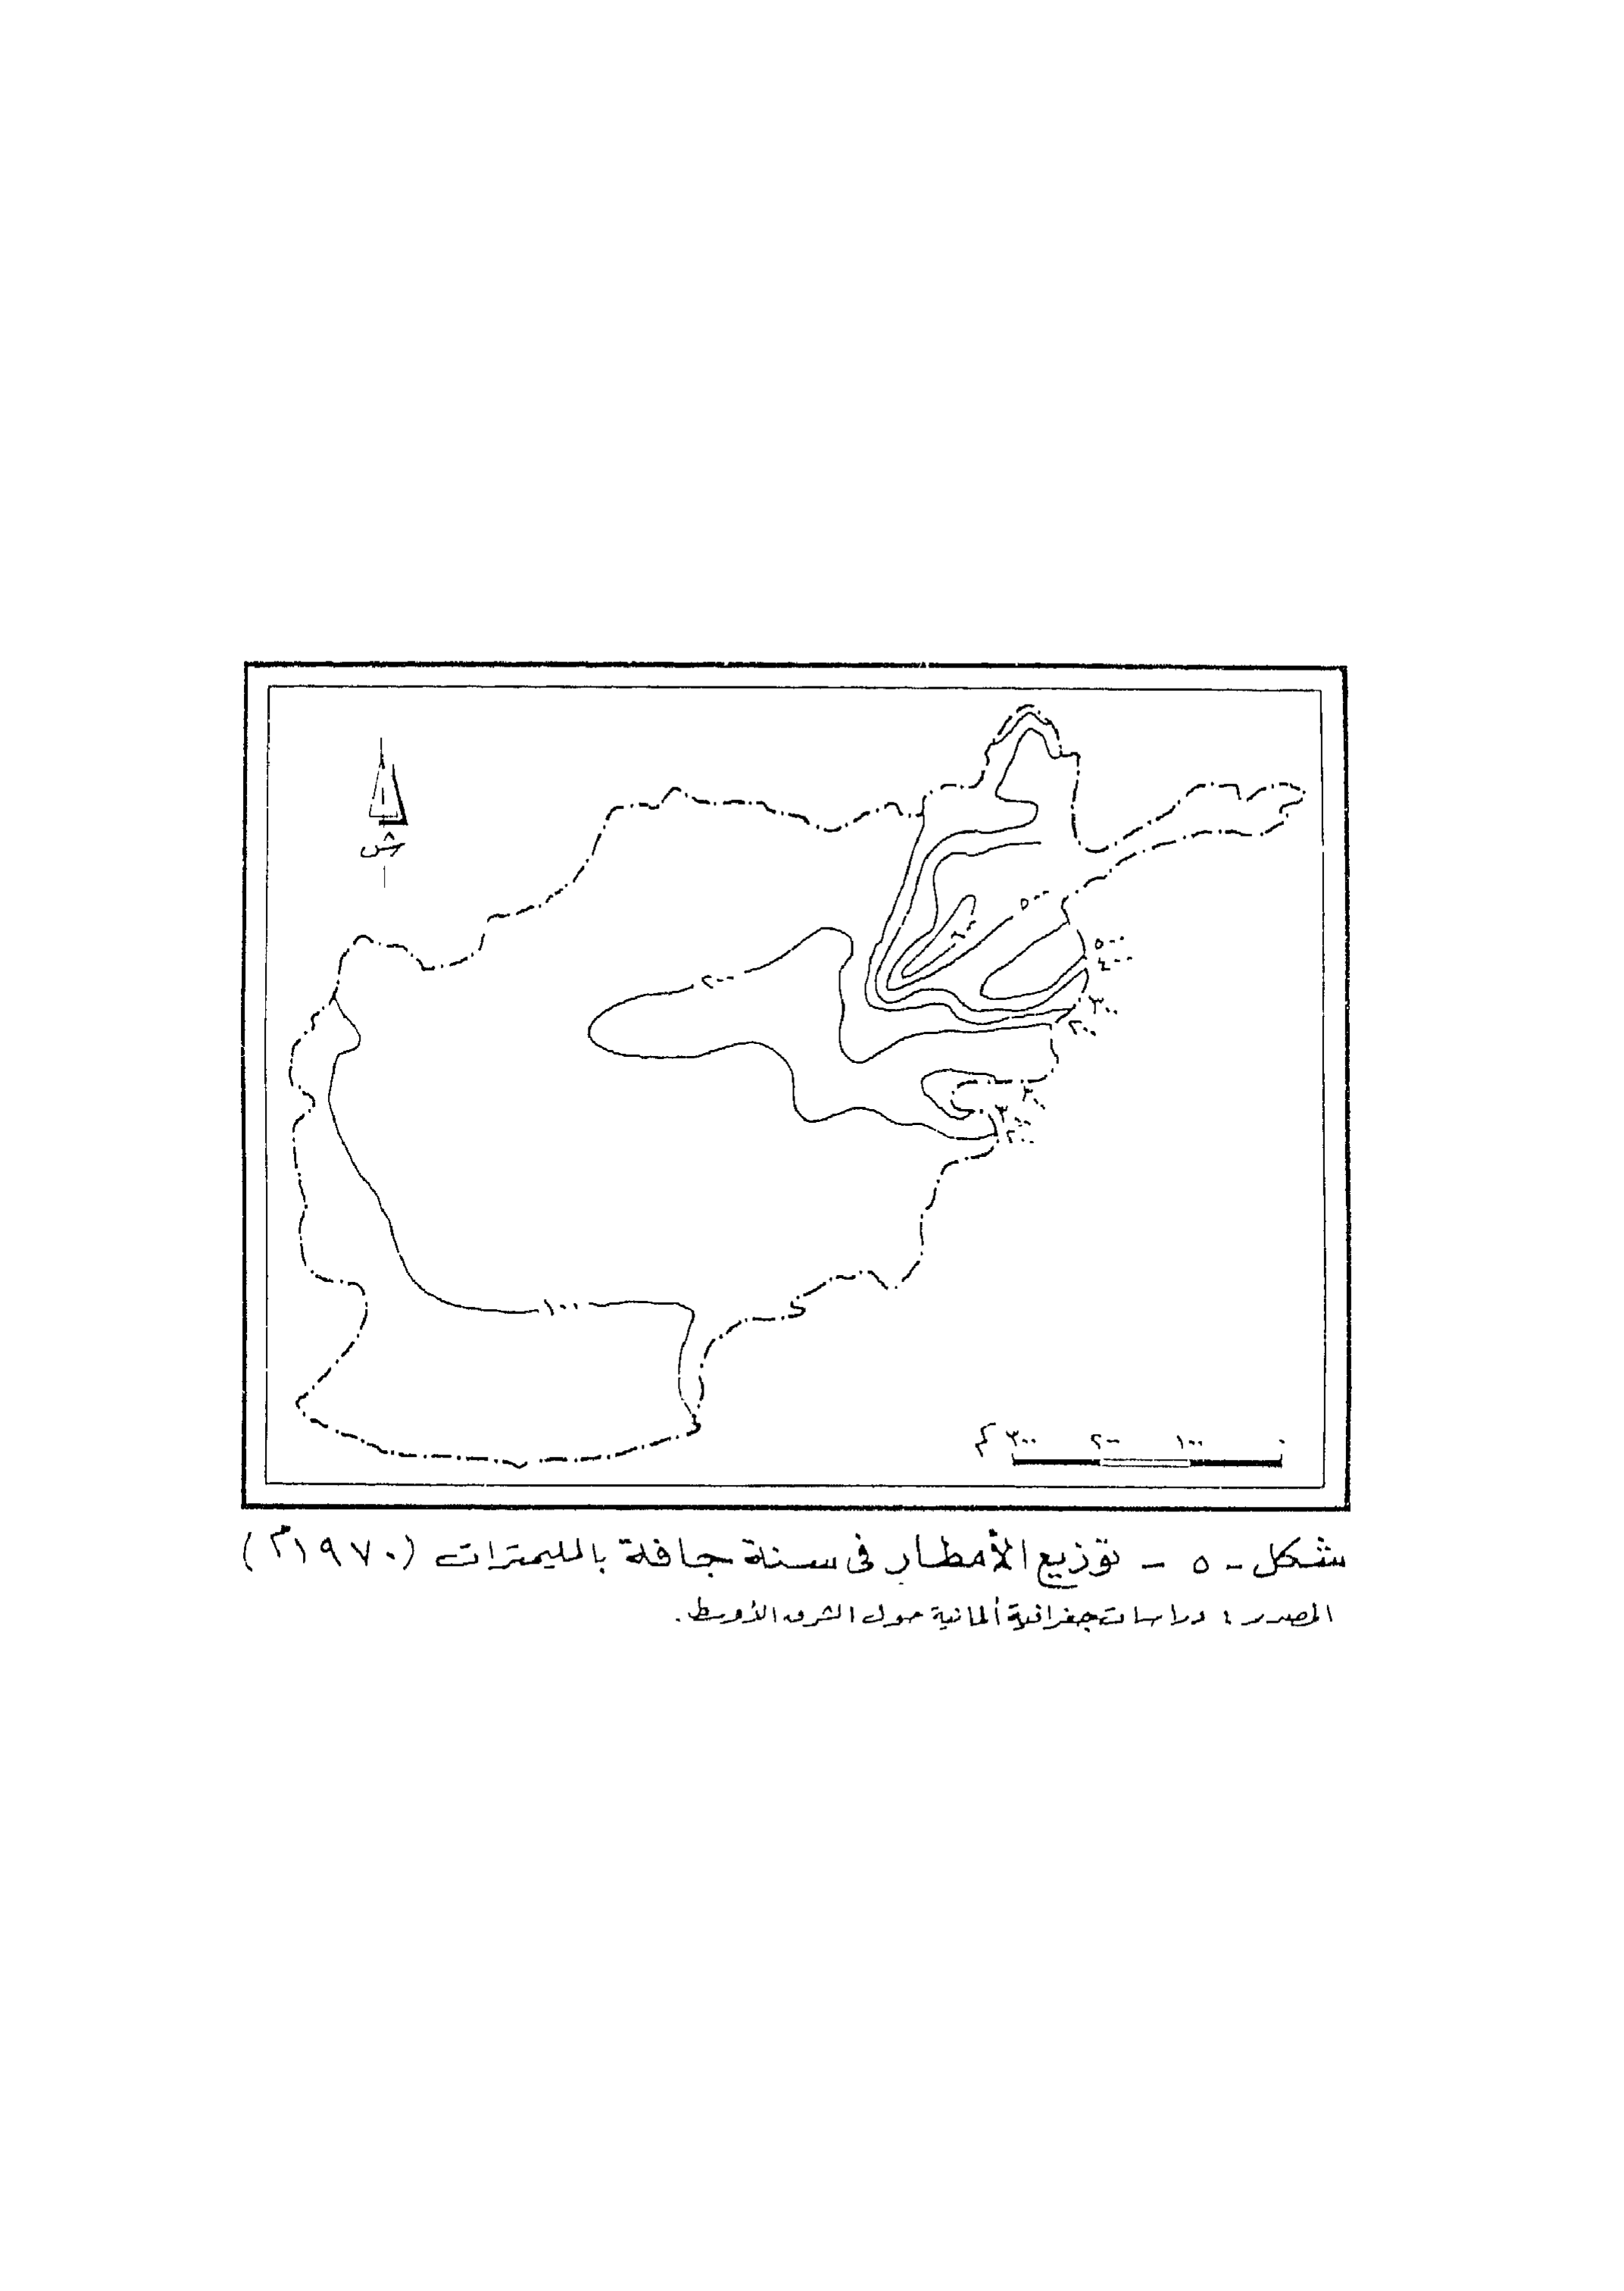 ش
٥٠٠
٦٠٠
٥٠٠
٤٠٠
٢٠٠
٣٠٠
٢٠٠
٣٠٠
٣٠٠
٢٠٠
١٠٠
كم ٣٠٠ ٢٠٠ ١٠٠ ٠
شكل - ٥ - توزيع الأمطار فى سنة جافة بالمليمترات (١٩٧٠م)
المصدر : دراسات جغرافية ألمانية حول الشرق الأوسط .